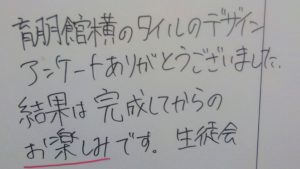 育朋館横のタイルのデザイン
アンケートありがとうございました。
結果は完成してからの
お楽しみです。 生徒会